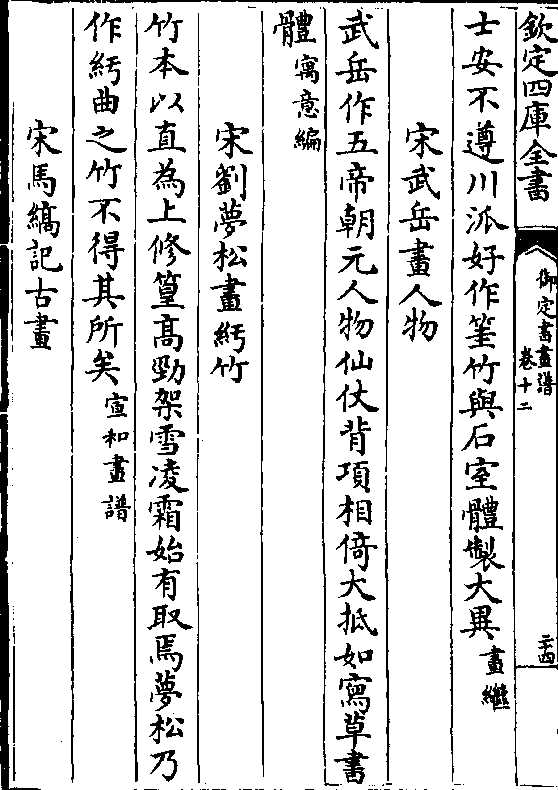 欽定四庫全書
御定書畫譜
卷十二
二十四
士安不遵川派好作筀竹與石室體製大異畫繼
宋武岳畫人物
武岳作五帝朝元人物仙仗背項相倚大抵如寫草書
體寓意編
宋劉夢松畫紆竹
竹本以直為上修篁高勁架雪凌霜始有取焉夢松乃
作紆曲之竹不得其所矣宣和畫譜
宋馬縞記古畫